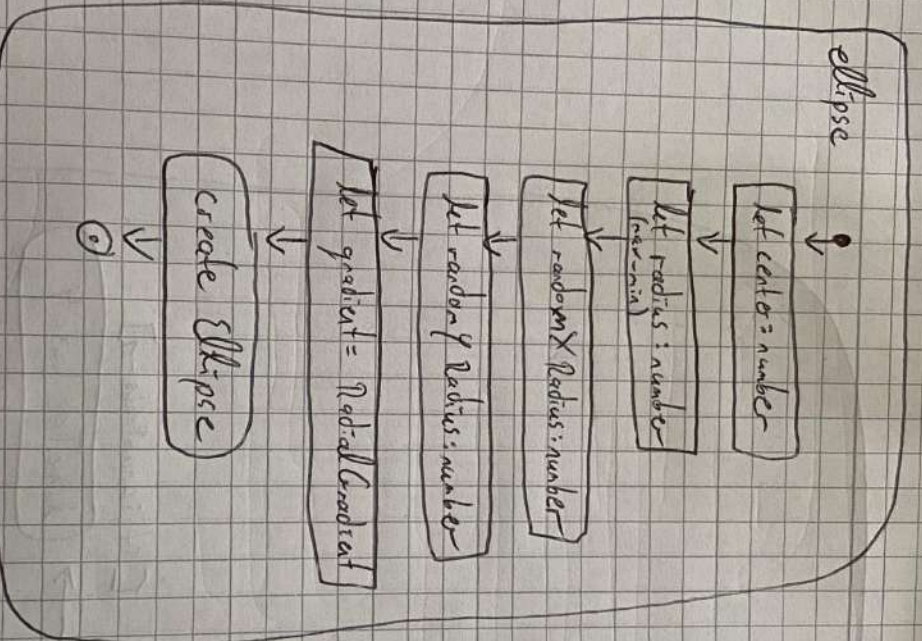 ellipse
let center: number
let radius: number
(max-min)
let randomX Radius: number
let randomY Radius: number
let gradient = RadialGradient
create Ellipse